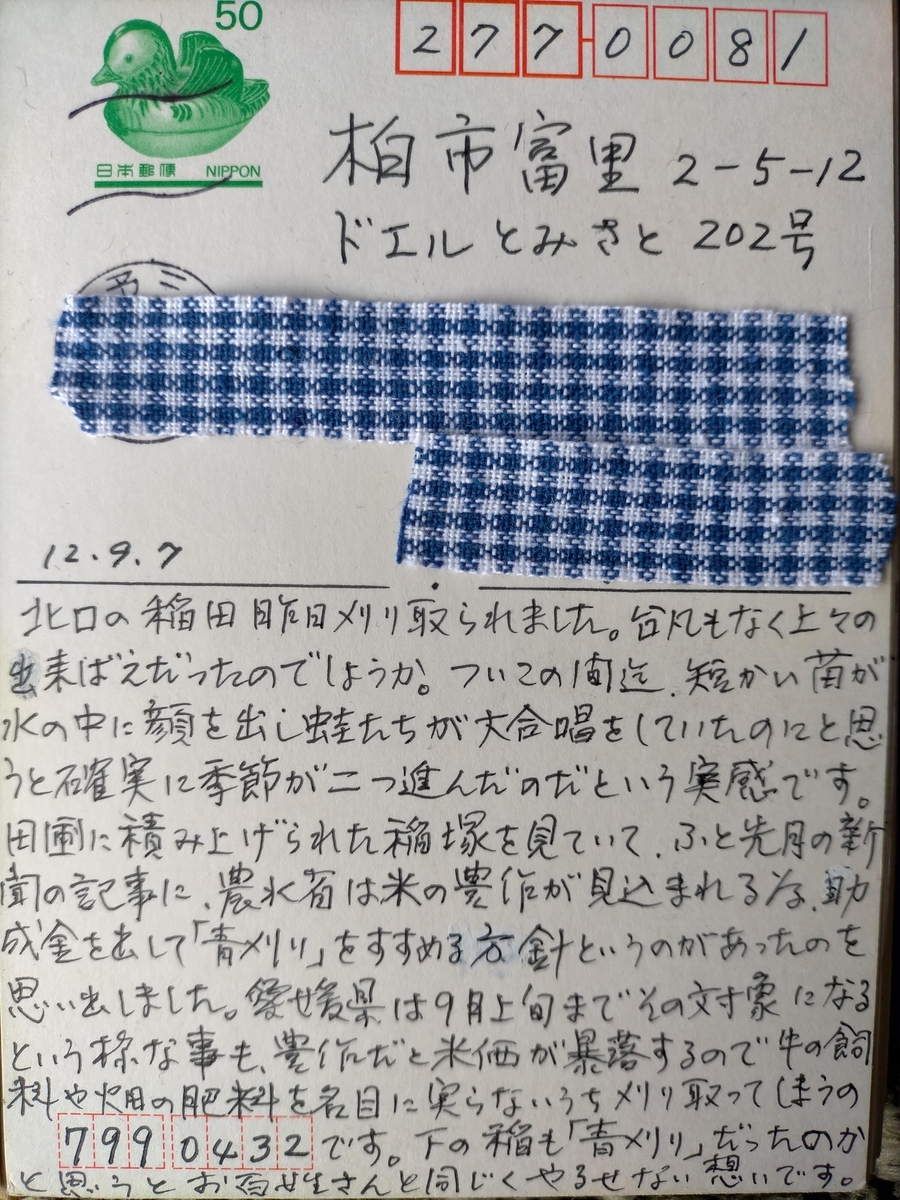 50
日本郵便 NIPPON
277-0081
柏市富里 2-5-12
ドエルとみさと 202号
予三
12.9.7
北口の稲田昨日刈り取られました。台風もなく上々の
出来ばえだったのでしょうか。ついこの間迄、短かい苗が
水の中に顔を出し蛙たちが大合唱をしていたのにと思
うと確実に季節が二つ進んだのだという実感です。
田圃に積み上げられた稲塚を見ていて、ふと先月の新
聞の記事に、農水省は米の豊作が見込まれる為、助
成金を出して「青刈り」をすすめる方針というのがあったのを
思い出しました。愛媛県は9月上旬までその対象になる
という様な事も、豊作だと米価が暴落するので牛の飼
料や畑の肥料を名目に実らないうち刈り取ってしまうの
799 0432 です。下の稲も「青刈り」だったのか
と思うとお百姓さんと同じくやるせない想いです。